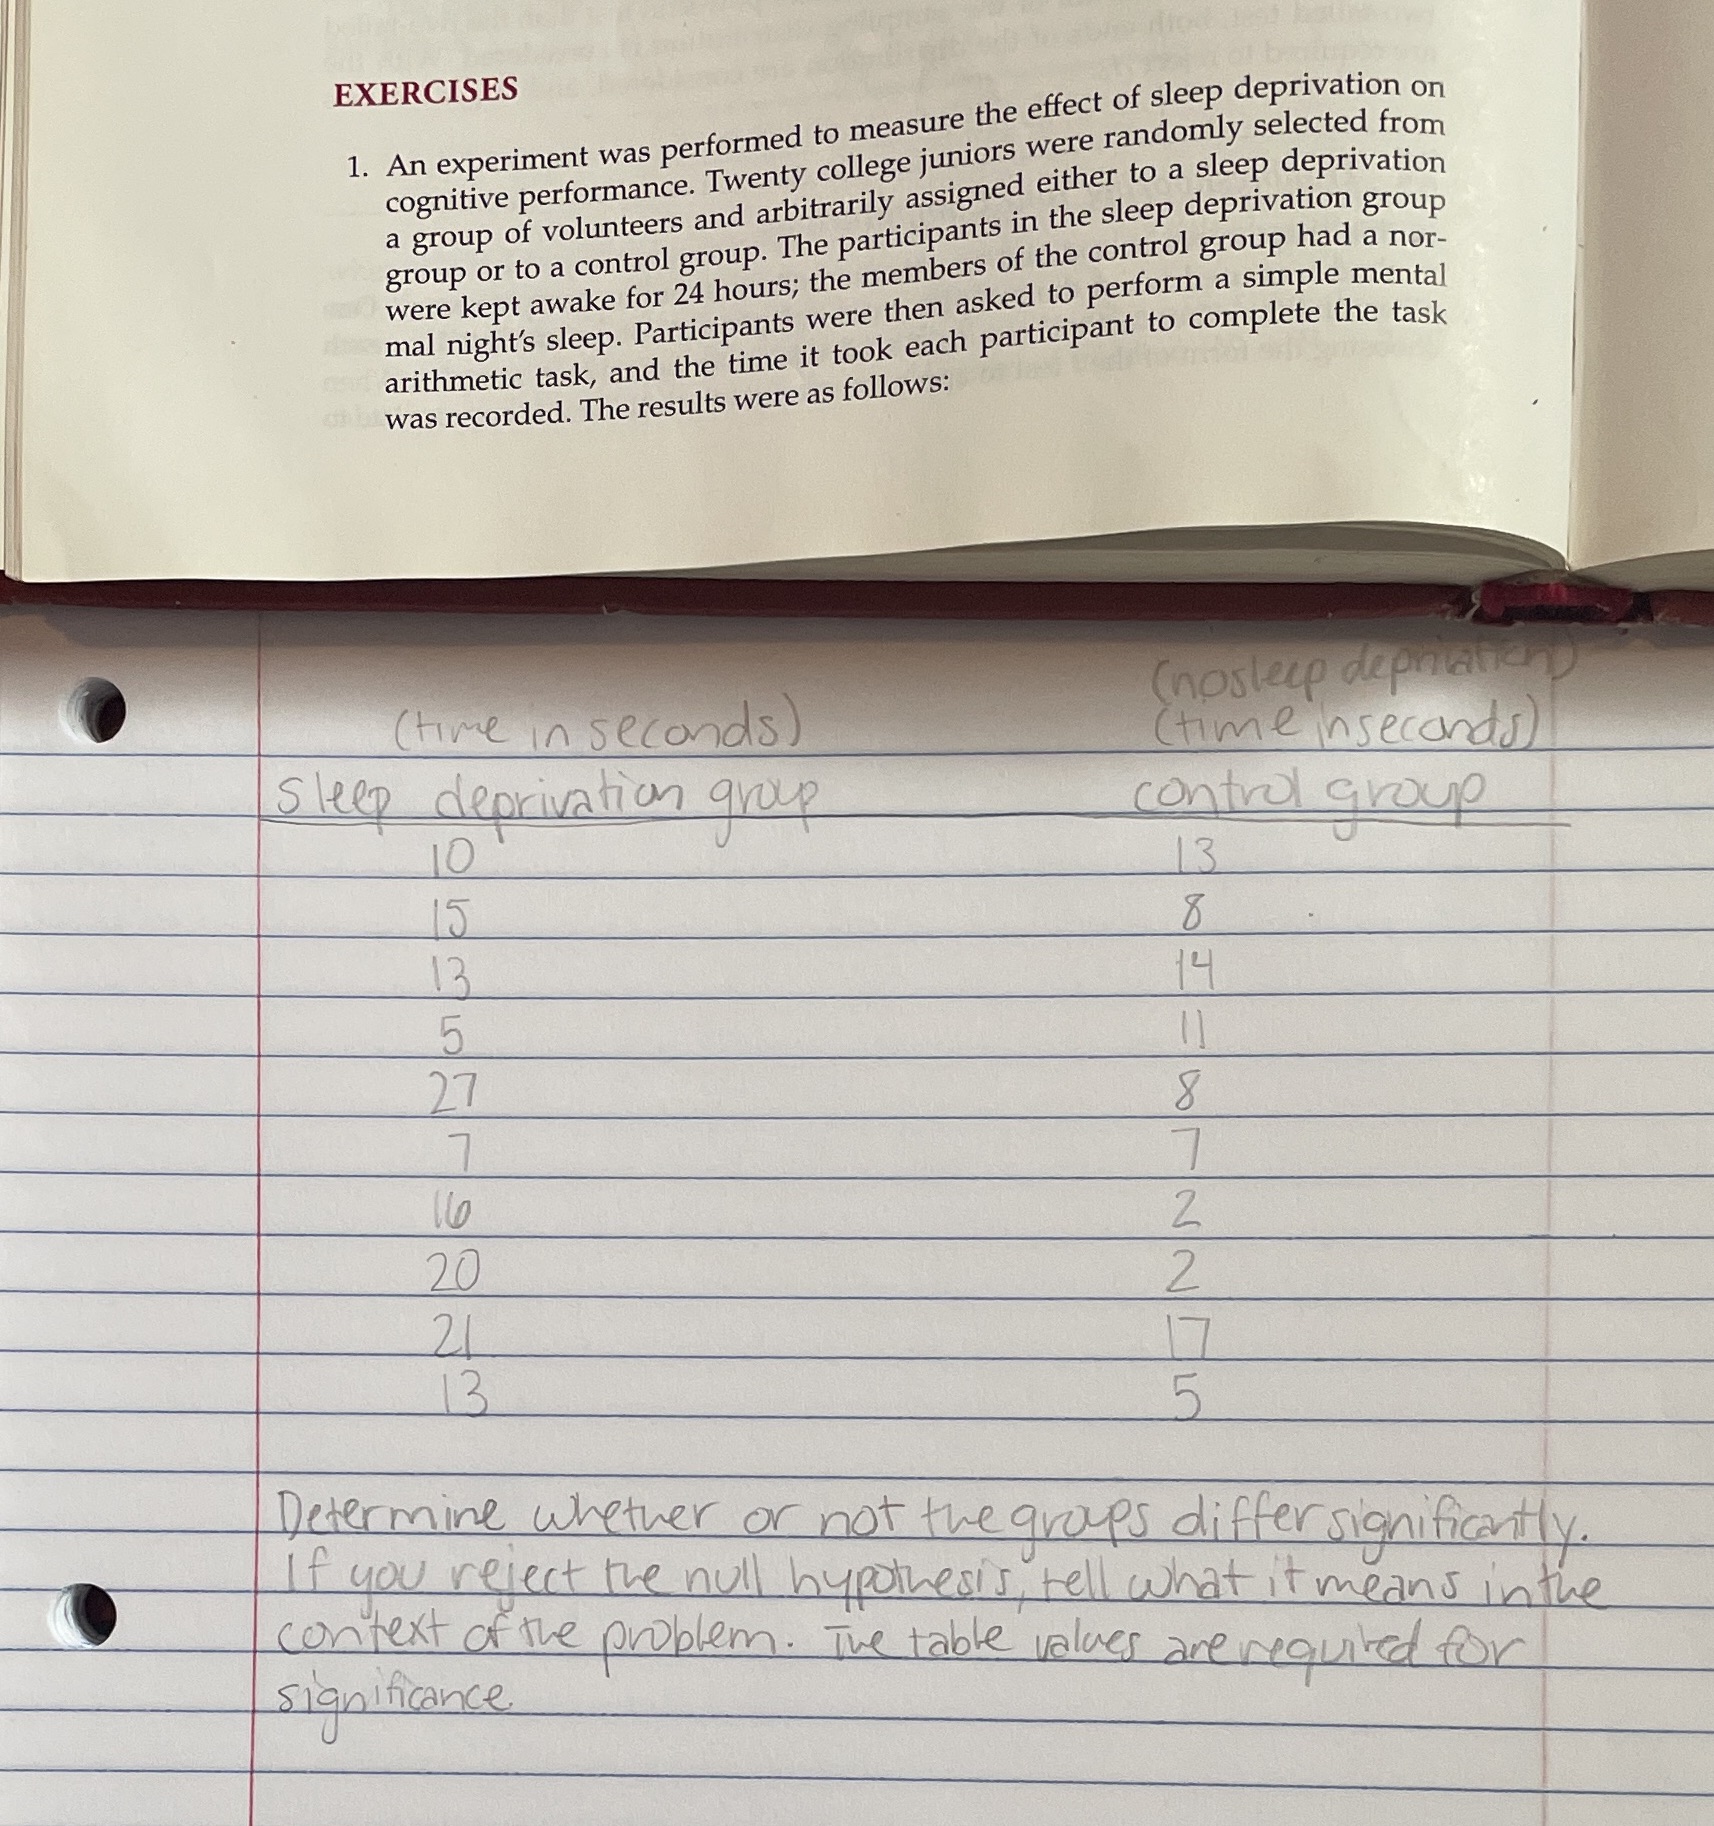 EXERCISES
1. An experiment was performed to measure the effect of sleep deprivation on
cognitive performance. Twenty college juniors were randomly selected from
a group of volunteers and arbitrarily assigned either to a sleep deprivation
group or to a control group. The participants in the sleep deprivation group
were kept awake for 24 hours; the members of the control group had a nor-
mal night's sleep. Participants were then asked to perform a simple mental
arithmetic task, and the time it took each participant to complete the task
was recorded. The results were as follows:
(no sleep deprivation)
(time in seconds) (time in seconds)
sleep deprivation group control group
10 13
15 8
13 14
5 11
27 8
7 7
16 2
20 2
21 17
13 5
Determine whether or not the groups differ significantly.
If you reject the null hypothesis, tell what it means in the
context of the problem. The table values are required for
significance.